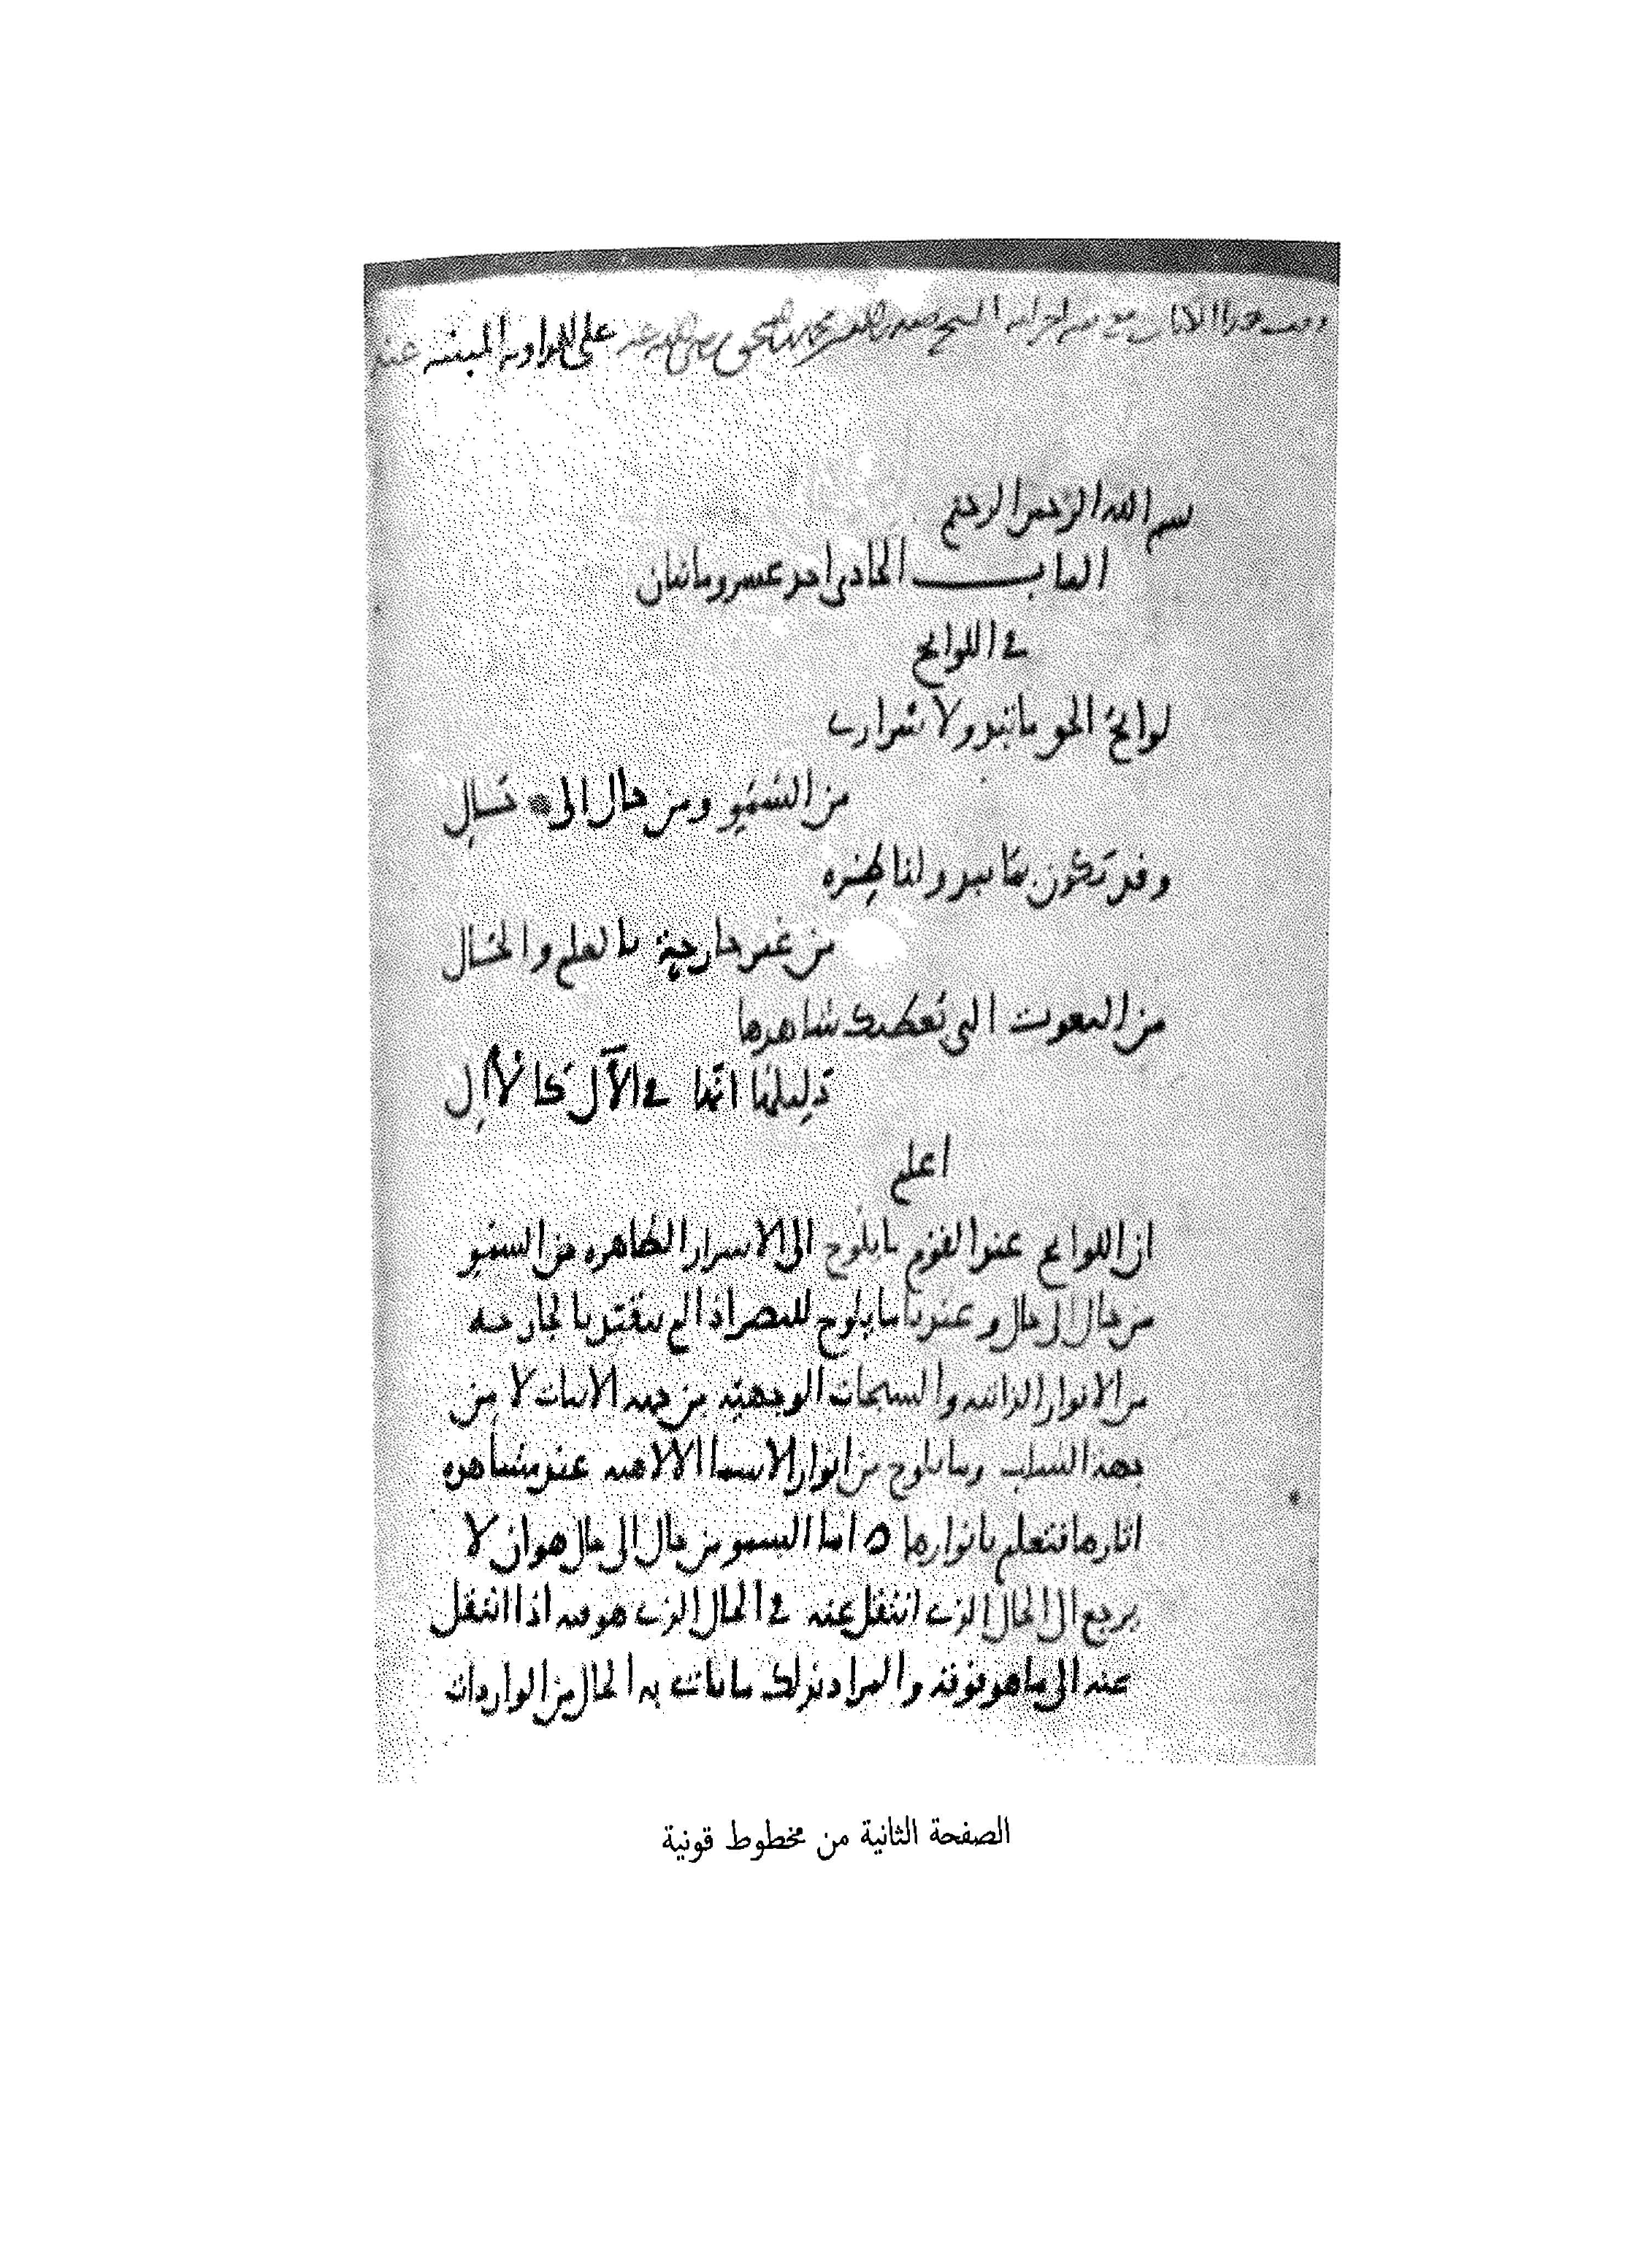 على الزاوية المبنية عند
بسم الله الرحمن الرحيم
الباب الحادي احد عشر ومائتان
في اللوائح
لوائح الحق ما تبدو لاسراري
من السمو ومن حال الى حال
وقد تكون بما يبدو لناظره
من غير جارحة بالعلم والحال
من النعوت التي تعطيك شاهدها
دليلها انها في الآل كالآل
اعلم
ان اللوائح عند القوم ما يلوح الى الاسرار الظاهره من السمو
من حال الى حال وعندنا ما يلوح للبصر اذا لم يتقيد بالجارحه
من الانوار الذاتيه والسبحات الوجهية من جهه الاثبات لا من
جهه السلب وما يلوح من انوار الاسما الالاهيه عند مشاهده
اثارها فتعلم بانوارها ه اما السمو من حال الى حال هو ان لا
يرجع الى الحال الذي انتقل عنه في الحال الذي هو فيه اذا انتقل
عنه الى ما هو فوقه والمراد بذلك ما ياتي به الحال من الواردات
الصفحة الثانية من مخطوط قونية